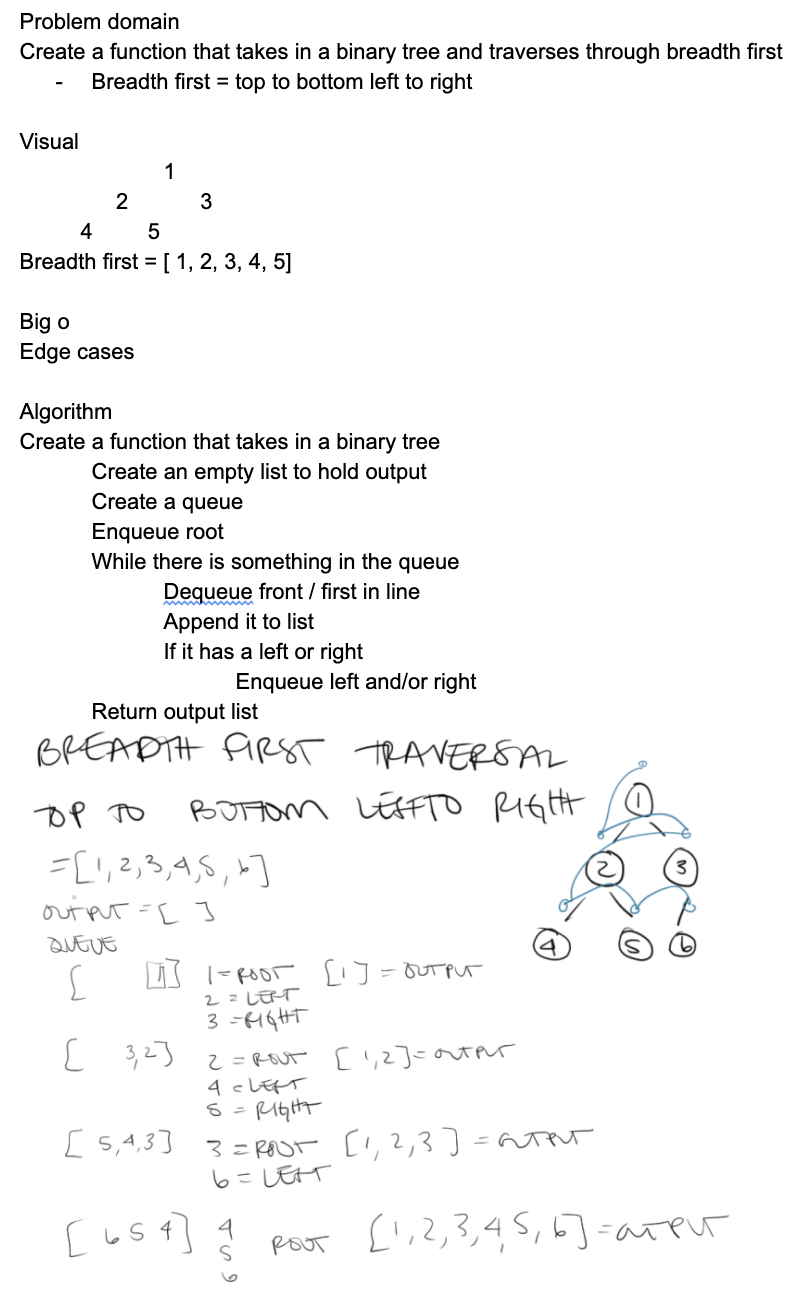 Problem domain
Create a function that takes in a binary tree and traverses through breadth first
- Breadth first = top to bottom left to right
Visual
1
2 3
4 5
Breadth first = [ 1, 2, 3, 4, 5]
Big o
Edge cases
Algorithm
Create a function that takes in a binary tree
Create an empty list to hold output
Create a queue
Enqueue root
While there is something in the queue
Dequeue front / first in line
Append it to list
If it has a left or right
Enqueue left and/or right
Return output list
BREADTH FIRST TRAVERSAL
TOP TO BOTTOM LEFT TO RIGHT
=[1,2,3,4,5,6]
OUTPUT = [ ]
QUEUE
1
2 3
4 5 6
[ 1] 1=ROOT [1] = OUTPUT
2 = LEFT
3 = RIGHT
[ 3,2] 2 = ROOT [1,2]= OUTPUT
4 = LEFT
5 = RIGHT
[ 5,4,3] 3 = ROOT [1,2,3] = OUTPUT
6 = LEFT
[ 6 5 4] 4
5 ROOT [1,2,3,4,5,6]=OUTPUT
6